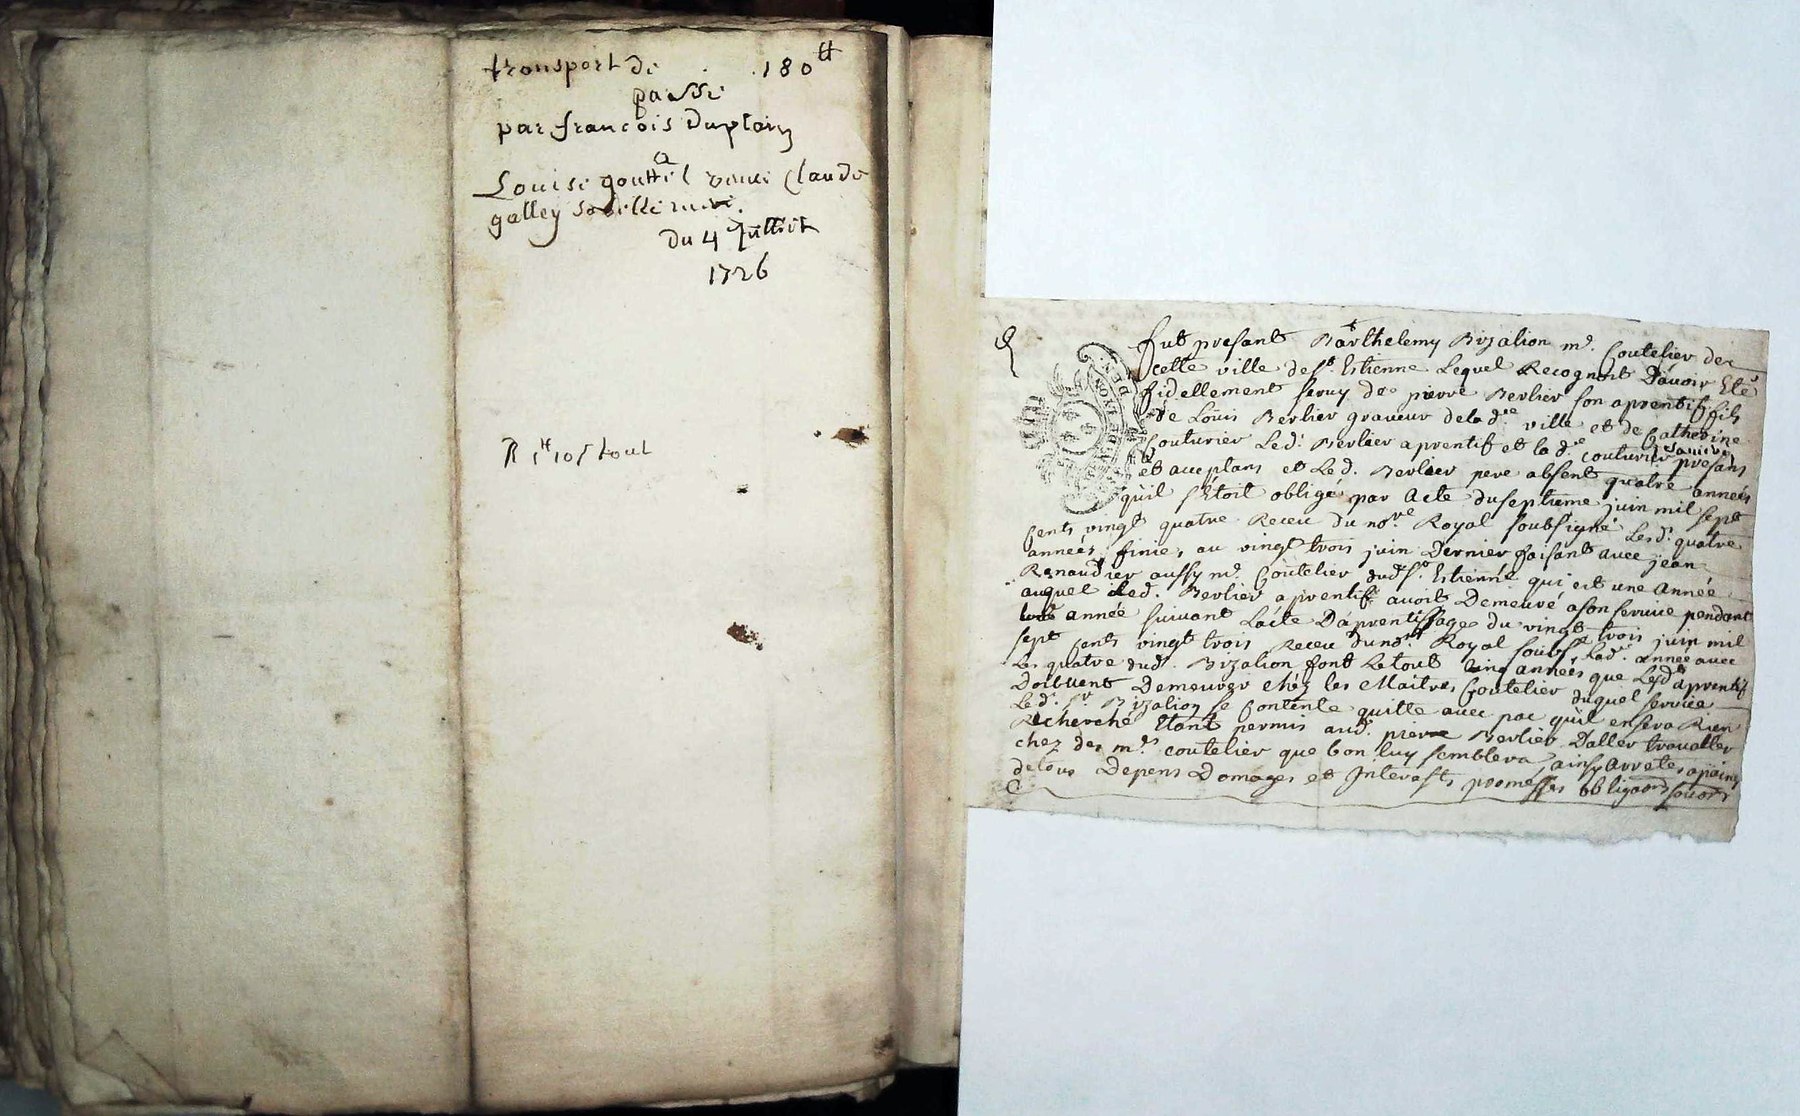 transport de 180tt
passe
par francois Duplain
a
Louise gouttel veuve Claude
galley
du 4 Juillet
1726
R 1tt 10s tout
fut present Barthelemy Bizalion md. Coutelier de
cette ville de st. Estienne Lequel Recognoit D'avoir Eté
fidellement servy de pierre Berlier son aprentif fils
de Louis Berlier graveur de lad.e ville et de Catherine
Couturier Led. Berlier aprentif et lad.e couturier presans
et acceptans et Led. Berlier pere absent quatre années
qu'il s'etoit obligé par Acte du septieme juin mil sept
cents vingt quatre Receu du no.re Royal soubsigné Lesd. quatre
années finies au vingt trois juin Dernier faisant avec jean
Renaudier aussy md. Coutelier dud. st. Estienne qui est une Année
auquel Led. Berlier aprentif avoit Demeuré a son service pendant
année suivant L'acte D'aprentissage du vingt trois juin mil
sept cents vingt trois Receu du no.re Royal soubs.e lad. année avec
Les quatre dud. Bizalion font Le tout Cinq années que Led. aprentif
Doibvent Demeurer chéz les Maitres Coutelier duquel service
Led. sr. Bizalion se Contente quitte avec pac qu'il en sera Rien
Recherché Etant permis aud. pierre Berlier D'aller travailler
chez des m.rs coutelier que bon luy semblera ainsy Arreté a peine
de tous Depens Domages et Interests promesses obligaons